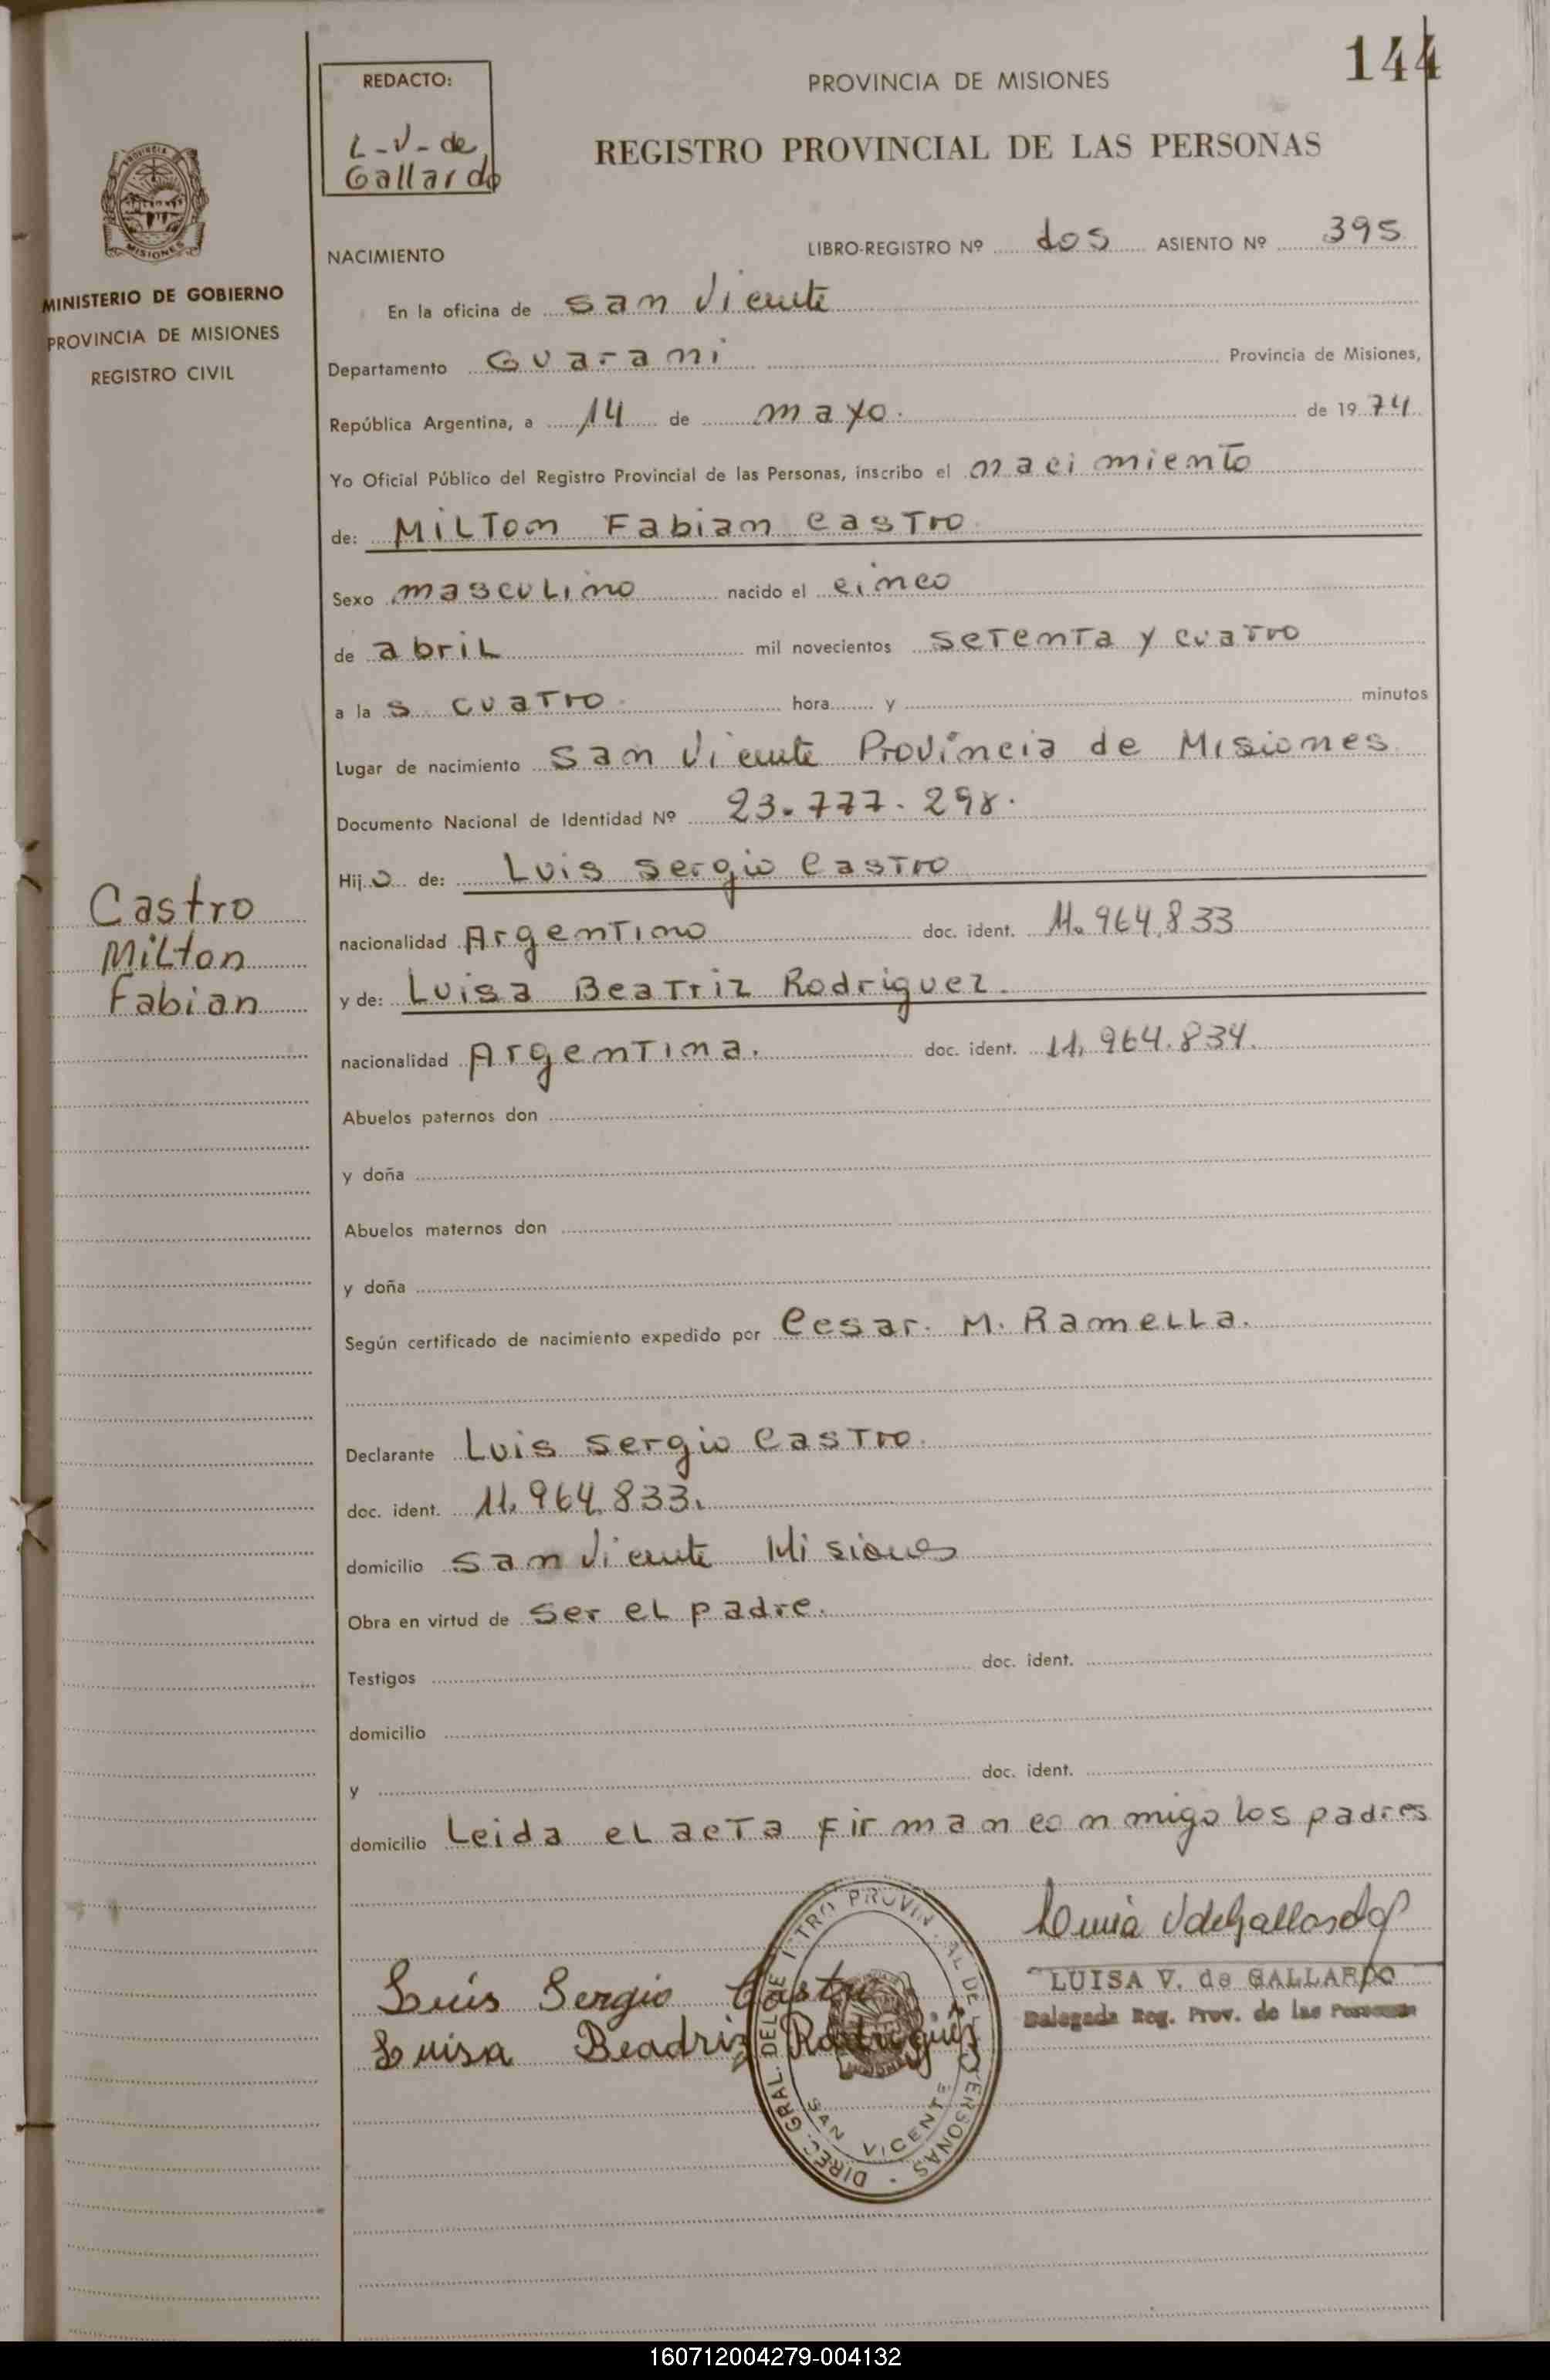 144
REDACTO:
L-V- de
Gallardo
PROVINCIA DE MISIONES
REGISTRO PROVINCIAL DE LAS PERSONAS
PROVINCIA
MISIONES
MINISTERIO DE GOBIERNO
PROVINCIA DE MISIONES
REGISTRO CIVIL
NACIMIENTO
LIBRO-REGISTRO Nº dos ASIENTO Nº 395
En la oficina de San Vicente
Departamento Guarani Provincia de Misiones,
República Argentina, a 14 de mayo. de 19 74
Yo Oficial Público del Registro Provincial de las Personas, inscribo el nacimiento
de: Milton Fabian Castro
Sexo masculino nacido el cinco
de abril mil novecientos setenta y cuatro
a la s cuatro hora y minutos
Lugar de nacimiento San Vicente Provincia de Misiones
Documento Nacional de Identidad Nº 23.777.298.
Hijo de: Luis Sergio Castro
Castro
Milton
Fabian
nacionalidad Argentino doc. ident. 11.964.833
y de: Luisa Beatriz Rodriguez.
nacionalidad Argentina. doc. ident. 11.964.834.
Abuelos paternos don
y doña
Abuelos maternos don
y doña
Según certificado de nacimiento expedido por Cesar. M. Ramella.
Declarante Luis Sergio Castro.
doc. ident. 11.964.833.
domicilio San Vicente Misiones
Obra en virtud de ser el padre.
Testigos doc. ident.
domicilio
y doc. ident.
domicilio Leida el acta firman conmigo los padres
Luisa V de Gallardo
LUISA V. de GALLARDO
Delegada Reg. Prov. de las Personas
Luis Sergio Castro
Luisa Beadriz Rodriguez
DIREC. GRAL. DEL REGISTRO PROVINCIAL DE LAS PERSONAS
SAN VICENTE
160712004279-004132